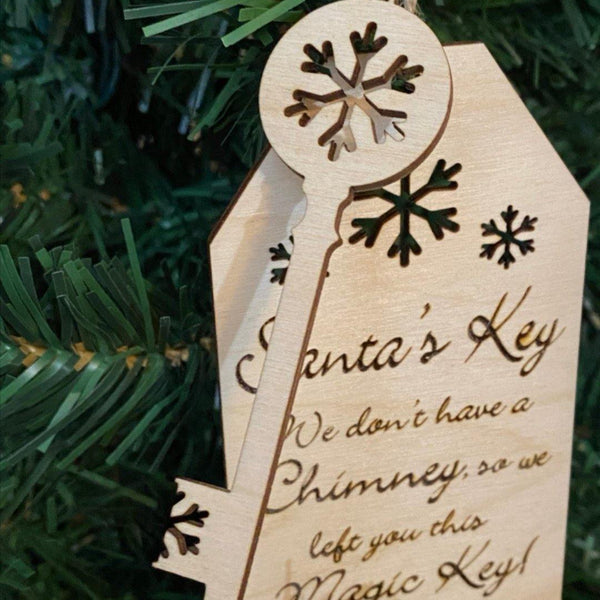 Santa's Key
We don't have a
Chimney, so we
left you this
Magic Key!